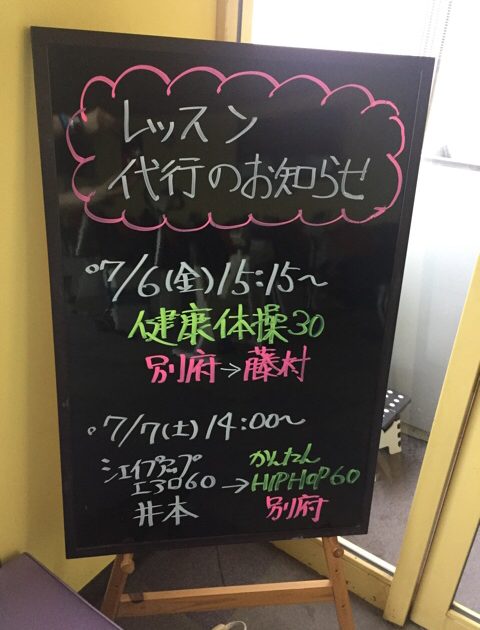 レッスン
代行のお知らせ
○7/6(金)15:15〜
健康体操30
別府→藤村
○7/7(土)14:00〜
シェイプアップ
エアロ60
井本
→
かんたん
HIPHOP60
別府